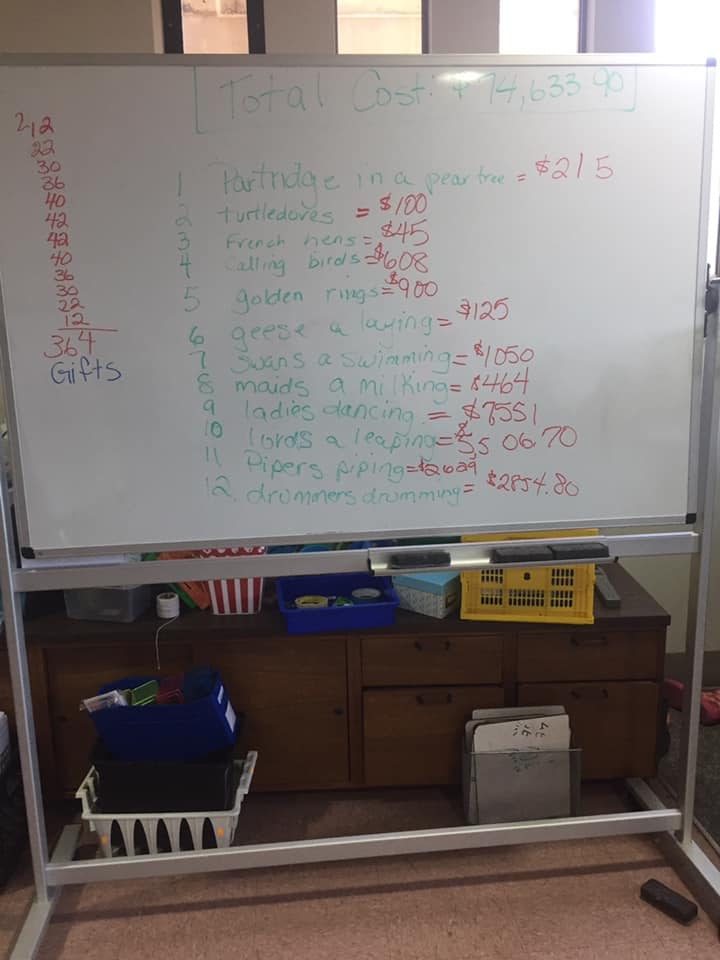 Total Cost: $74,633.90
2,12
22
30
36
40
42
42
40
36
30
22
12
364
Gifts
1 Partridge in a pear tree = $215
2 turtledoves = $100
3 French hens = $45
4 Calling birds = $608
5 golden rings = $900
6 geese a laying = $125
7 swans a swimming = $1050
8 maids a milking = $464
9 ladies dancing = $7551
10 lords a leaping = $55 06.70
11 Pipers piping = $2629
12. drummers drumming = $2854.80